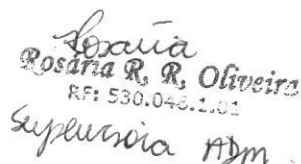 Rosaria
Rosária R. R. Oliveira
RF: 530.046.1.01
Supervisora ADM